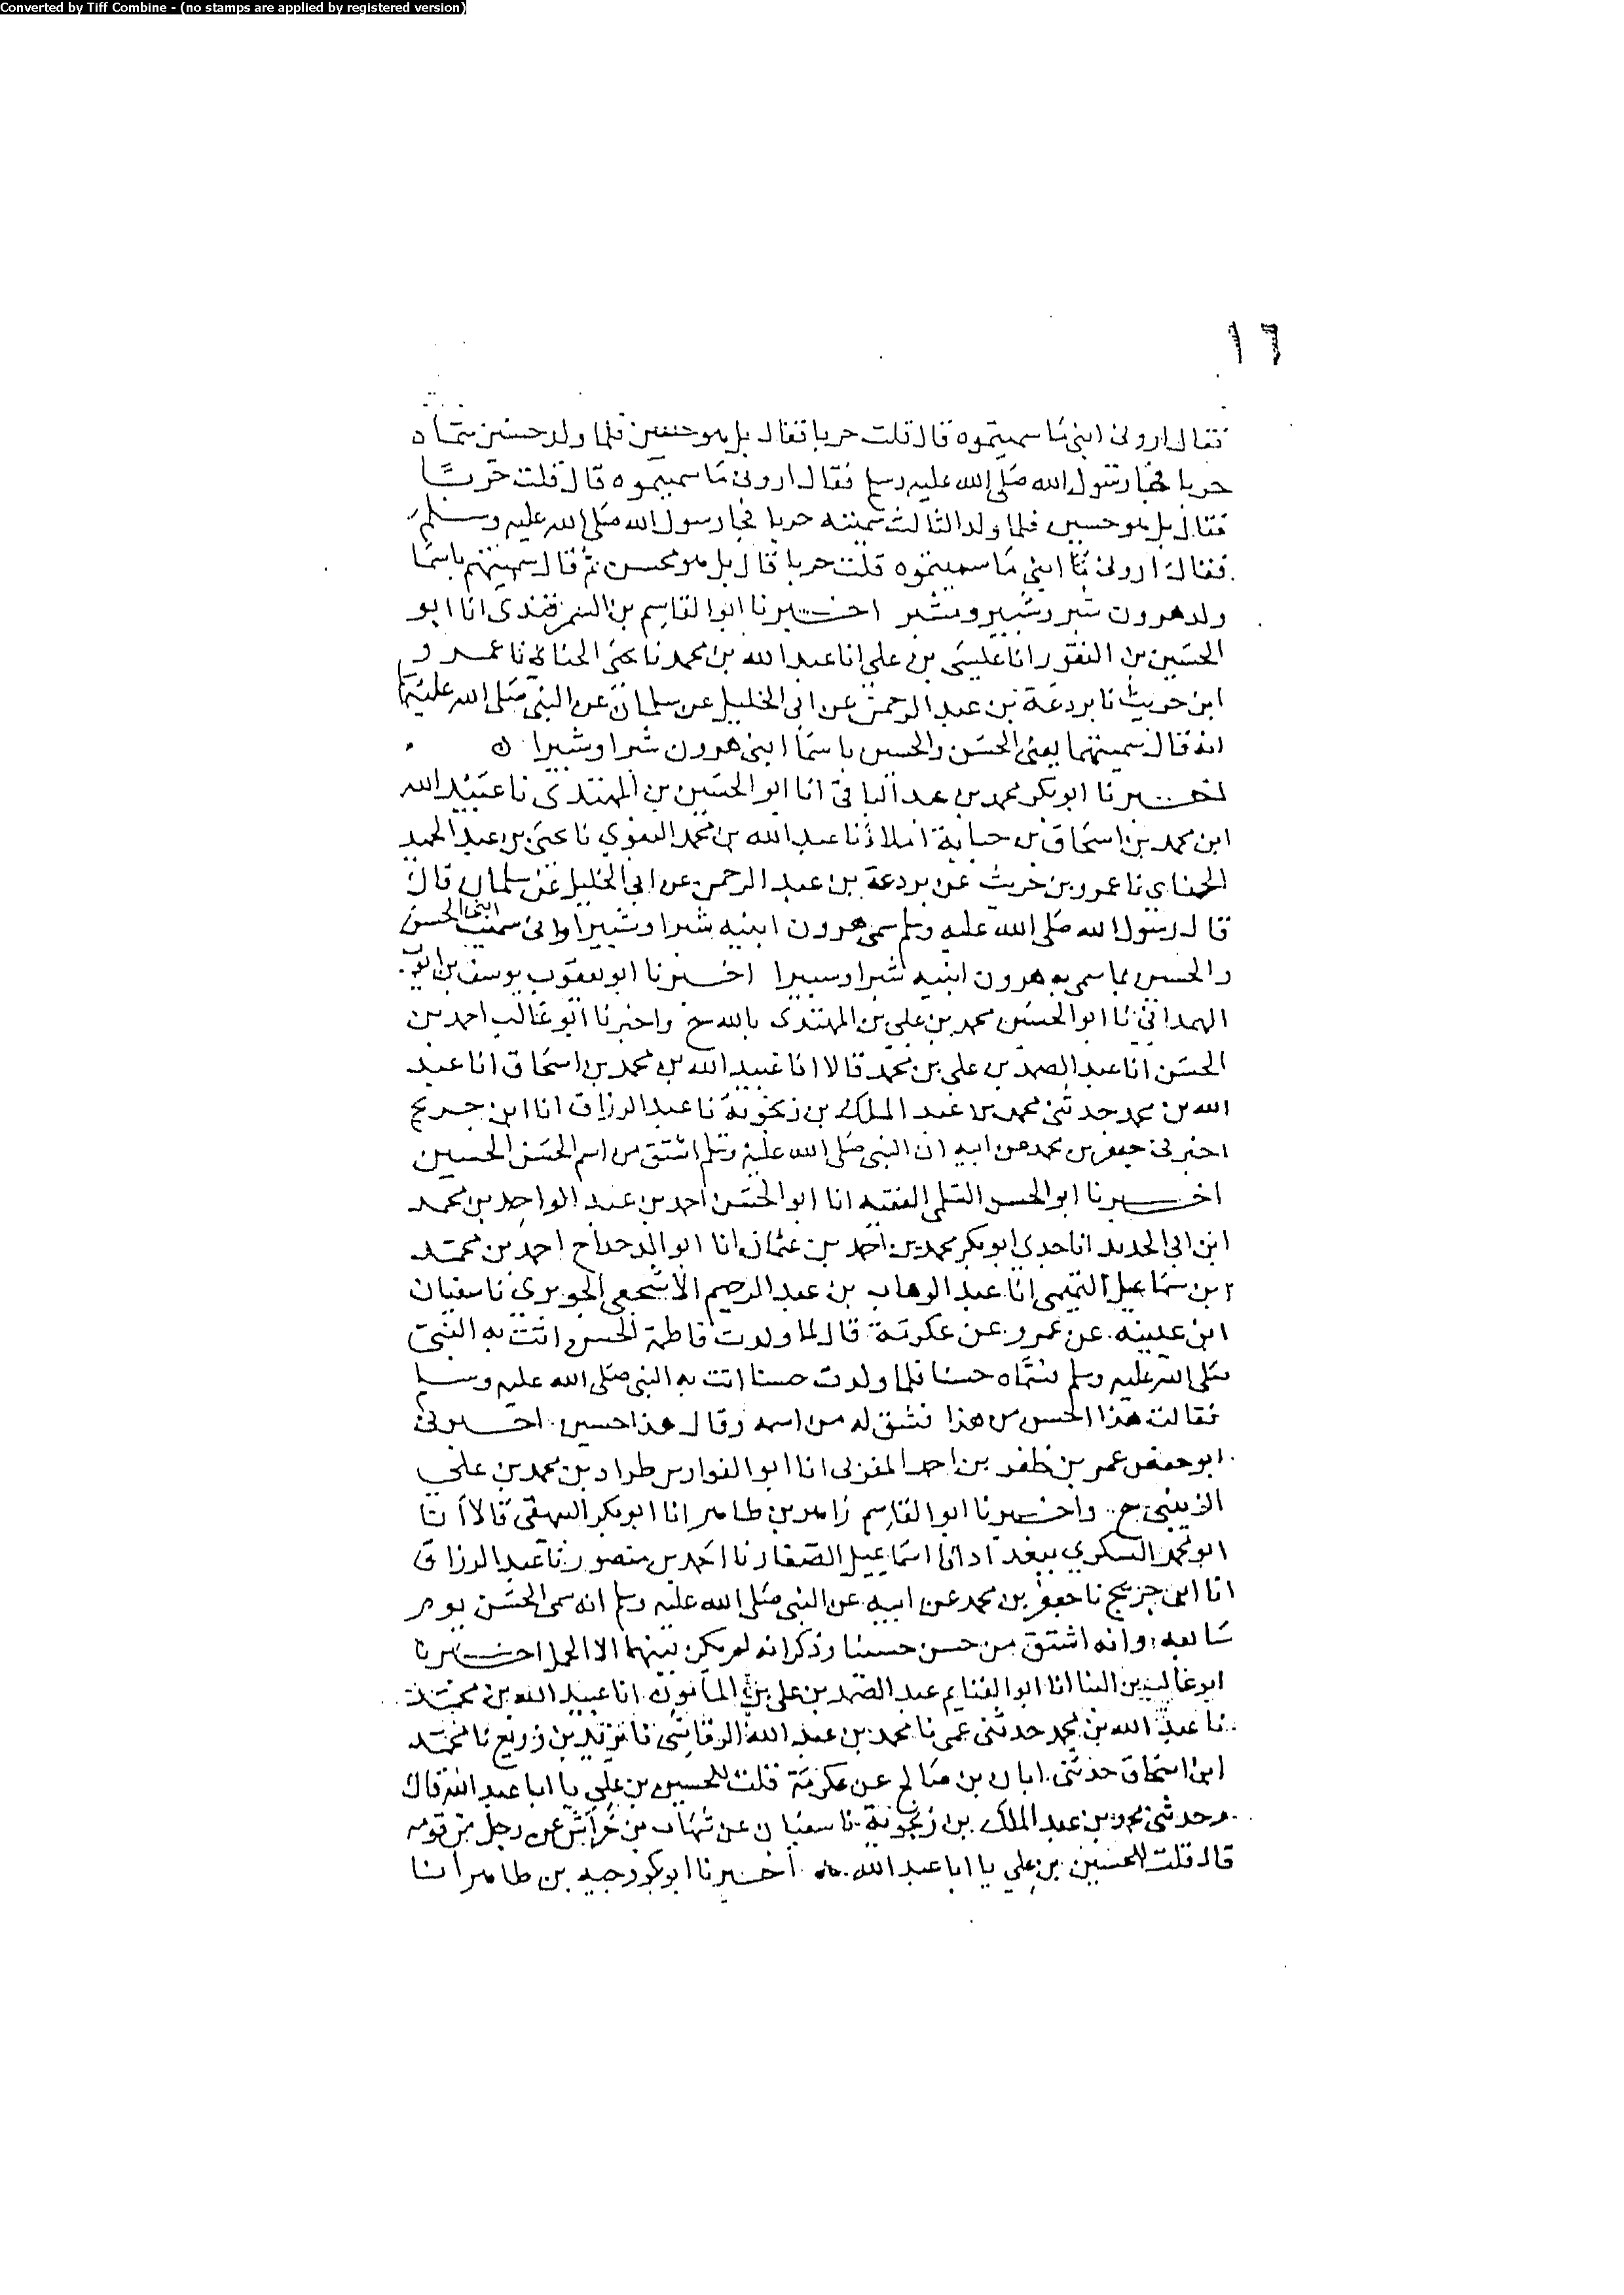 Converted by Tiff Combine - (no stamps are applied by registered version)
١٦
فقال اروني ابني ما سميتموه قال قلت حربا فقال بل هو حسن فلما ولد حسين سماه
حربا فجا رسول الله صلى الله عليه وسلم فقال اروني ما سميتموه قال قلت حربًا
فقال بل هو حسين فلما ولد الثالث سميته حربا فجا رسول الله صلى الله عليه وسلم
فقال اروني ابني ما سميتموه قلت حربا قال بل هو محسن ثم قال سميتهم باسما
ولد هرون شبر وشبير ومشبر اخبرنا ابو القاسم بن السمرقندي انا ابو
الحسين بن النقور انا عيسى بن علي انا عبد الله بن محمد نا يحيى الحماني نا عمرو
ابن حريث نا بردعة بن عبد الرحمن عن ابي الخليل عن سلمان عن النبي صلى الله عليه
انه قال سميتهما يعني الحسن والحسين باسما ابني هرون شبرا وشبيرا ه
اخبرنا ابو بكر محمد بن عبد الباقي انا ابو الحسين بن المهتدي نا عبيد الله
ابن محمد بن اسحاق بن حبابة املا نا عبد الله بن محمد البغوي نا يحيى بن عبد الحميد
الحماني نا عمرو بن حريث عن بردعة بن عبد الرحمن عن ابي الخليل عن سلمان قال
قال رسول الله صلى الله عليه وسلم سمى هرون ابنيه شبرا وشبيرا واني سميت ابني الحسن
والحسين بما سمى به هرون ابنيه شبرا وشبيرا اخبرنا ابو يعقوب يوسف بن ايوب
الهمداني نا ابو الحسين محمد بن علي بن المهتدي بالله ح واخبرنا ابو غالب احمد بن
الحسن انا عبد الصمد بن علي بن محمد قالا انا عبيد الله بن محمد بن اسحاق انا عبد
الله بن محمد حدثني محمد بن عبد الملك بن زنجوية نا عبد الرزاق انا ابن جريج
اخبرني جعفر بن محمد عن ابيه ان النبي صلى الله عليه وسلم اشتق من اسم الحسن الحسين
اخبرنا ابو الحسن السلمي الفقيه انا ابو الحسن احمد بن عبد الواحد بن محمد
ابن ابي الحديد انا جدي ابو بكر محمد بن احمد بن عثمان انا ابو الدحداح احمد بن محمد
بن سماعيل التميمي انا عبد الوهاب بن عبد الرحيم الاشجعي الجوبري نا سفيان
ابن عيينه عن عمرو عن عكرمة قال لما ولدت فاطمة الحسن اتت به النبي
صلى الله عليه وسلم فسماه حسنا فلما ولدت حسنا اتت به النبي صلى الله عليه وسلم
فقالت هذا احسن من هذا فشق له من اسمه وقال هذا حسين اخبرني
ابو حفص عمر بن ظفر بن احمد المغزلي انا ابو الفوارس طراد بن محمد بن علي
الزينبي ح واخبرنا ابو القاسم زاهر بن طاهر انا ابو بكر البيهقي قالا انا
ابو محمد السكري ببغداد انا اسماعيل الصفار نا احمد بن منصور نا عبد الرزاق
انا ابن جريج نا جعفر بن محمد عن ابيه عن النبي صلى الله عليه وسلم انه سمى الحسن يوم
سابعه وانه اشتق من حسن حسينا وذكر انه لم يكن بينهما الا الحمل اخبرنا
ابو غالب بن البنا انا ابو الغنايم عبد الصمد بن علي بن المامون انا عبيد الله بن محمد
نا عبد الله بن محمد حدثني عمي نا محمد بن عبد الله الرقاشي نا يزيد بن زريع نا محمد
ابن اسحاق حدثني ابان بن صالح عن عكرمة قلت للحسين بن علي يا ابا عبد الله قال
وحدثني محمد بن عبد الملك بن زنجوية نا سفيان عن شهاب بن خراش عن رجل من قومه
قال قلت للحسين بن علي يا ابا عبد الله ه اخبرنا ابو بكر وجيه بن طاهر انا